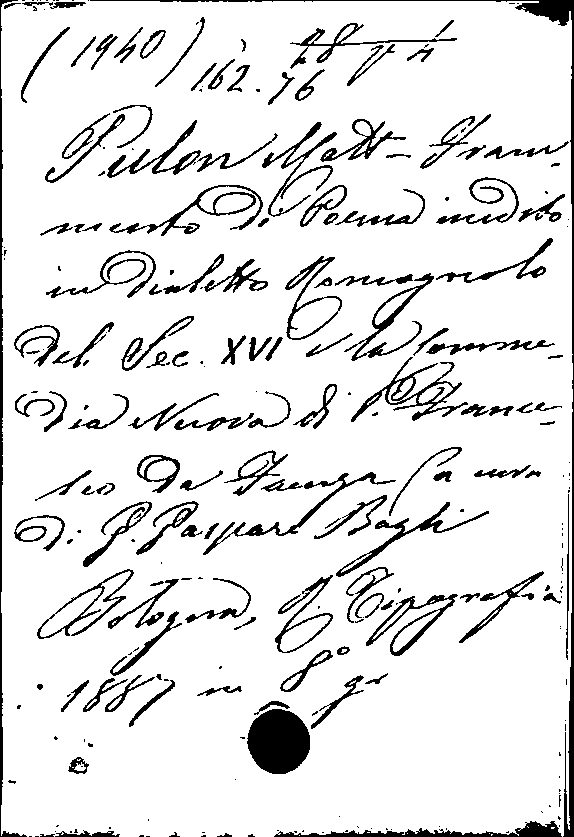 (1940) 28 γ 4
162. 76
Pulon Matt– Fram-
mento di Poema inedito
in dialetto Romagnolo
del Sec. XVI e la Comme-
dia Nuova di P. France-
sco da Faenza (a cura
di G. Gaspare Bagli
Bologna, R. Tipografia
1887 in 8° gr